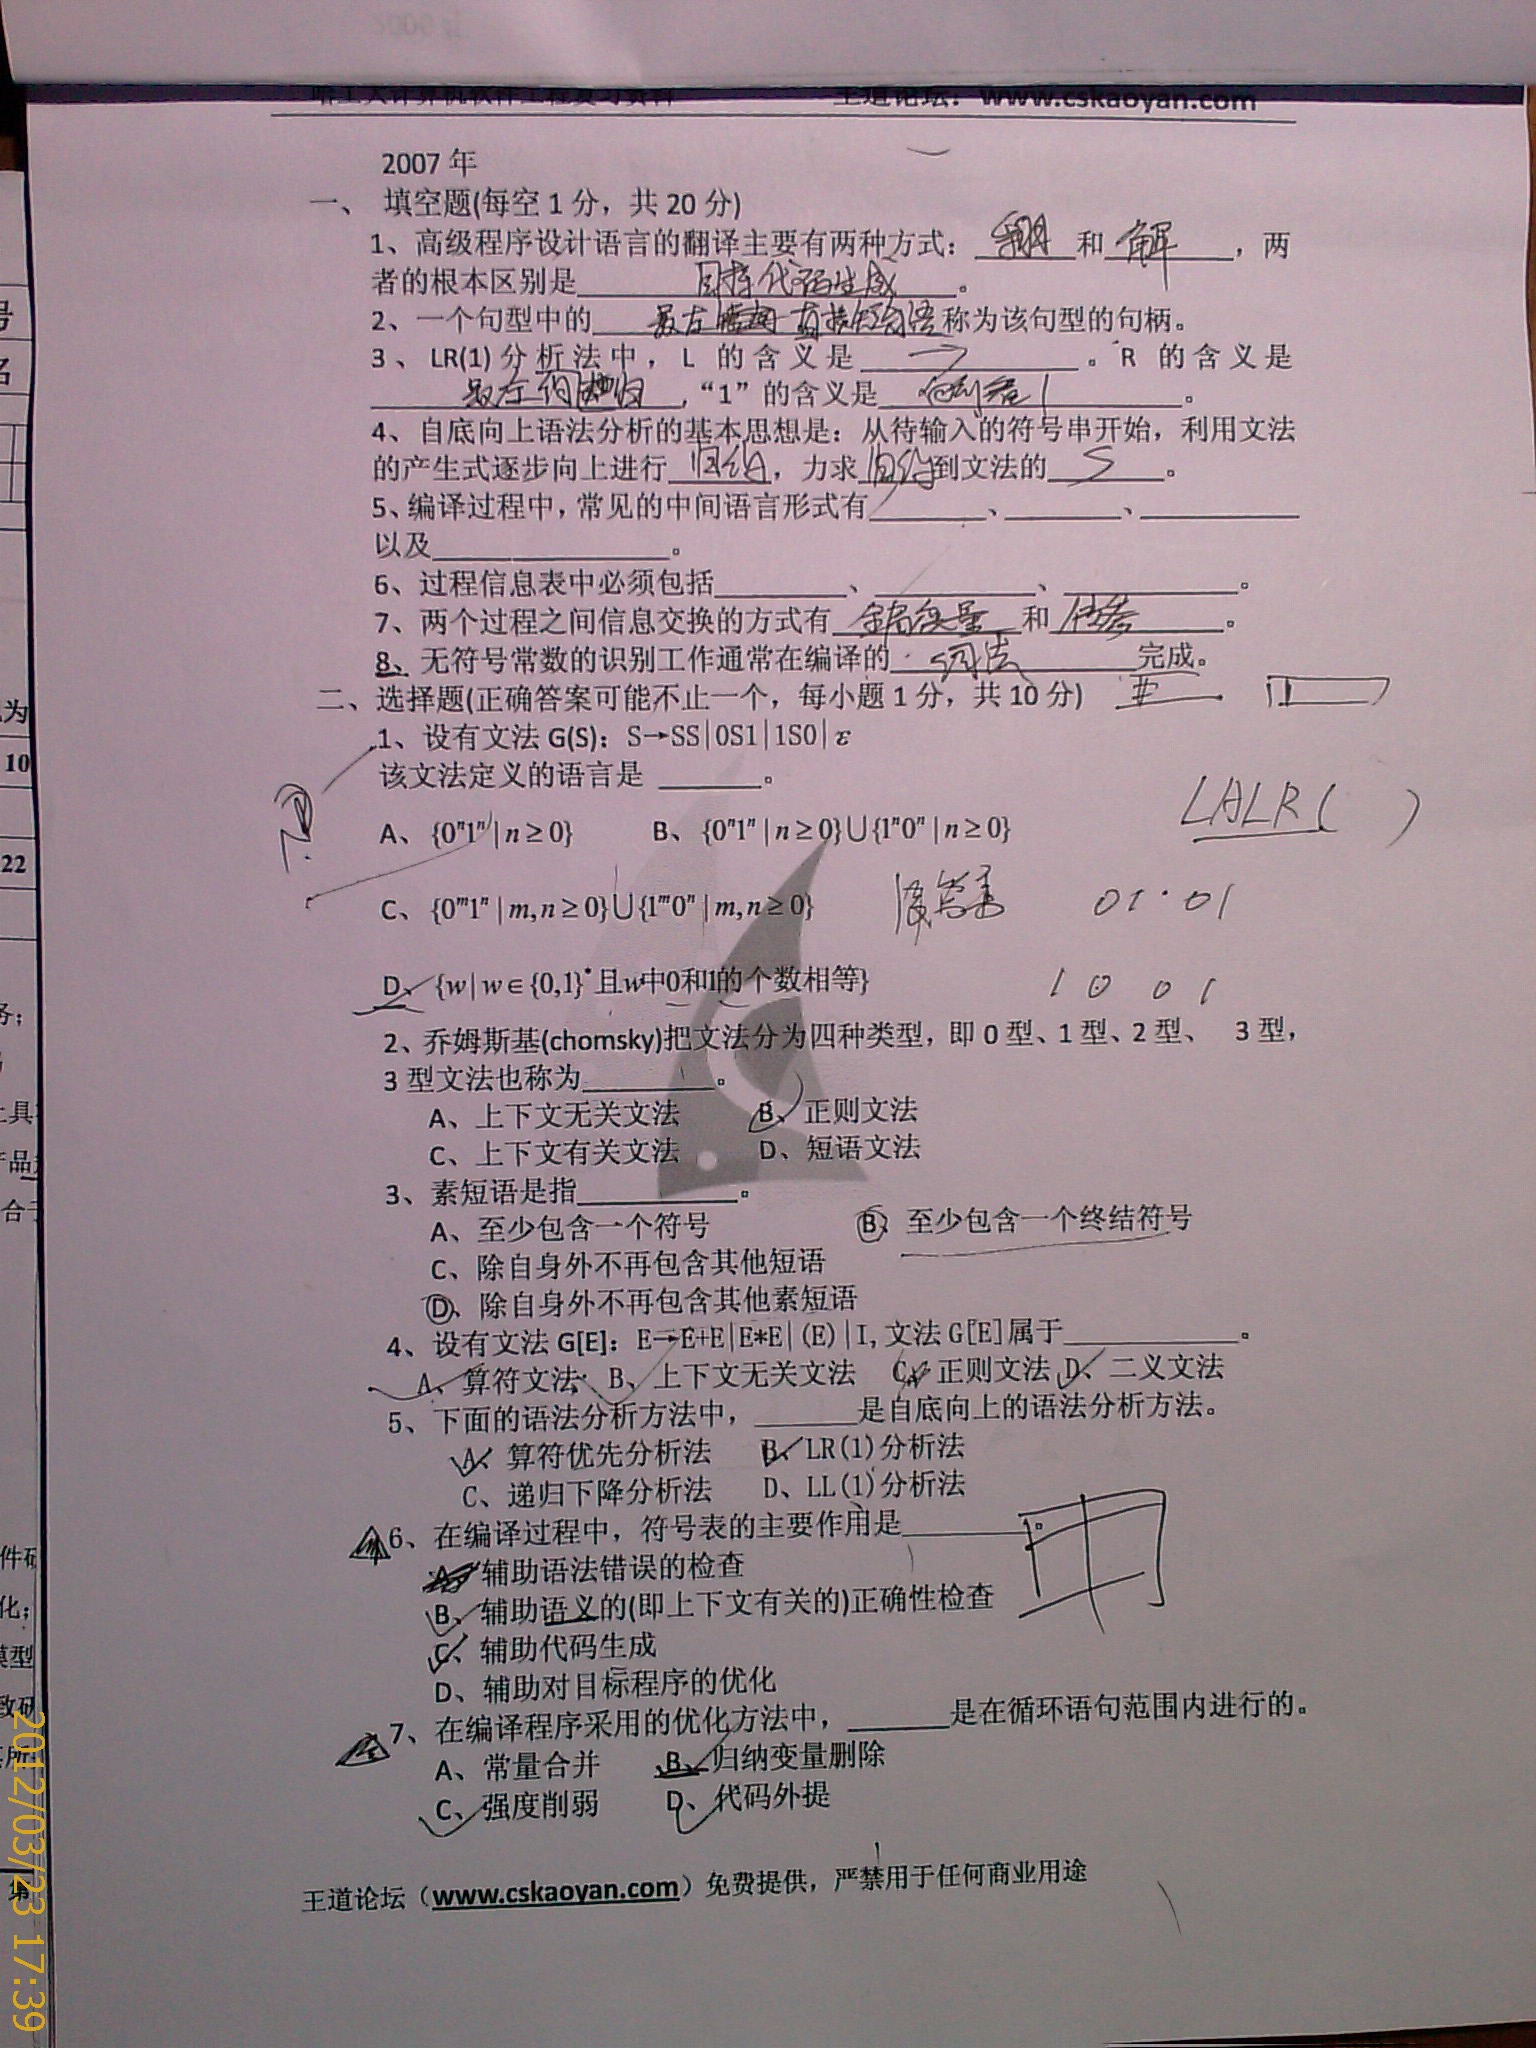 哈工大计算机软件工程复习资料 王道论坛：www.cskaoyan.com
2007 年
一、 填空题(每空 1 分，共 20 分)
1、高级程序设计语言的翻译主要有两种方式：____和 解____，两
者的根本区别是 目标代码生成 。
2、一个句型中的 最左 直接短语 称为该句型的句柄。
3、LR(1)分析法中，L 的含义是 → 。R 的含义是
最左 归，“1”的含义是 向前看1 。
4、自底向上语法分析的基本思想是：从待输入的符号串开始，利用文法
的产生式逐步向上进行 归约，力求 归约到文法的 S 。
5、编译过程中，常见的中间语言形式有____、____、____
以及____。
6、过程信息表中必须包括____、____、____。
7、两个过程之间信息交换的方式有 全局变量 和 传参 。
8、无符号常数的识别工作通常在编译的 词法 完成。
二、选择题(正确答案可能不止一个，每小题 1 分，共 10 分)
1、设有文法 G(S)：S→SS|0S1|1S0|ε
该文法定义的语言是 ____。
LALR( )
A、{0ⁿ1ⁿ | n≥0} B、{0ⁿ1ⁿ | n≥0}∪{1ⁿ0ⁿ | n≥0}
C、{0ᵐ1ⁿ | m,n≥0}∪{1ᵐ0ⁿ | m,n≥0} 01·01
D、{w | w∈{0,1}*且w中0和1的个数相等} 1 0 0 1
2、乔姆斯基(chomsky)把文法分为四种类型，即 0 型、1 型、2 型、 3 型，
3 型文法也称为____。
A、上下文无关文法 B、正则文法
C、上下文有关文法 D、短语文法
3、素短语是指____。
A、至少包含一个符号 B、至少包含一个终结符号
C、除自身外不再包含其他短语
D、除自身外不再包含其他素短语
4、设有文法 G[E]：E→E+E|E*E|(E)|I,文法 G[E]属于____。
A、算符文法 B、上下文无关文法 C、正则文法 D、二义文法
5、下面的语法分析方法中，____是自底向上的语法分析方法。
A、算符优先分析法 B、LR(1)分析法
C、递归下降分析法 D、LL(1)分析法
6、在编译过程中，符号表的主要作用是____。
A、辅助语法错误的检查
B、辅助语义的(即上下文有关的)正确性检查
C、辅助代码生成
D、辅助对目标程序的优化
7、在编译程序采用的优化方法中，____是在循环语句范围内进行的。
A、常量合并 B、归纳变量删除
C、强度削弱 D、代码外提
王道论坛（www.cskaoyan.com）免费提供，严禁用于任何商业用途
号
名
为
10
22
务；
具
产品
合于
件研
化；
模型
致研
第
2012/03/23 17:39